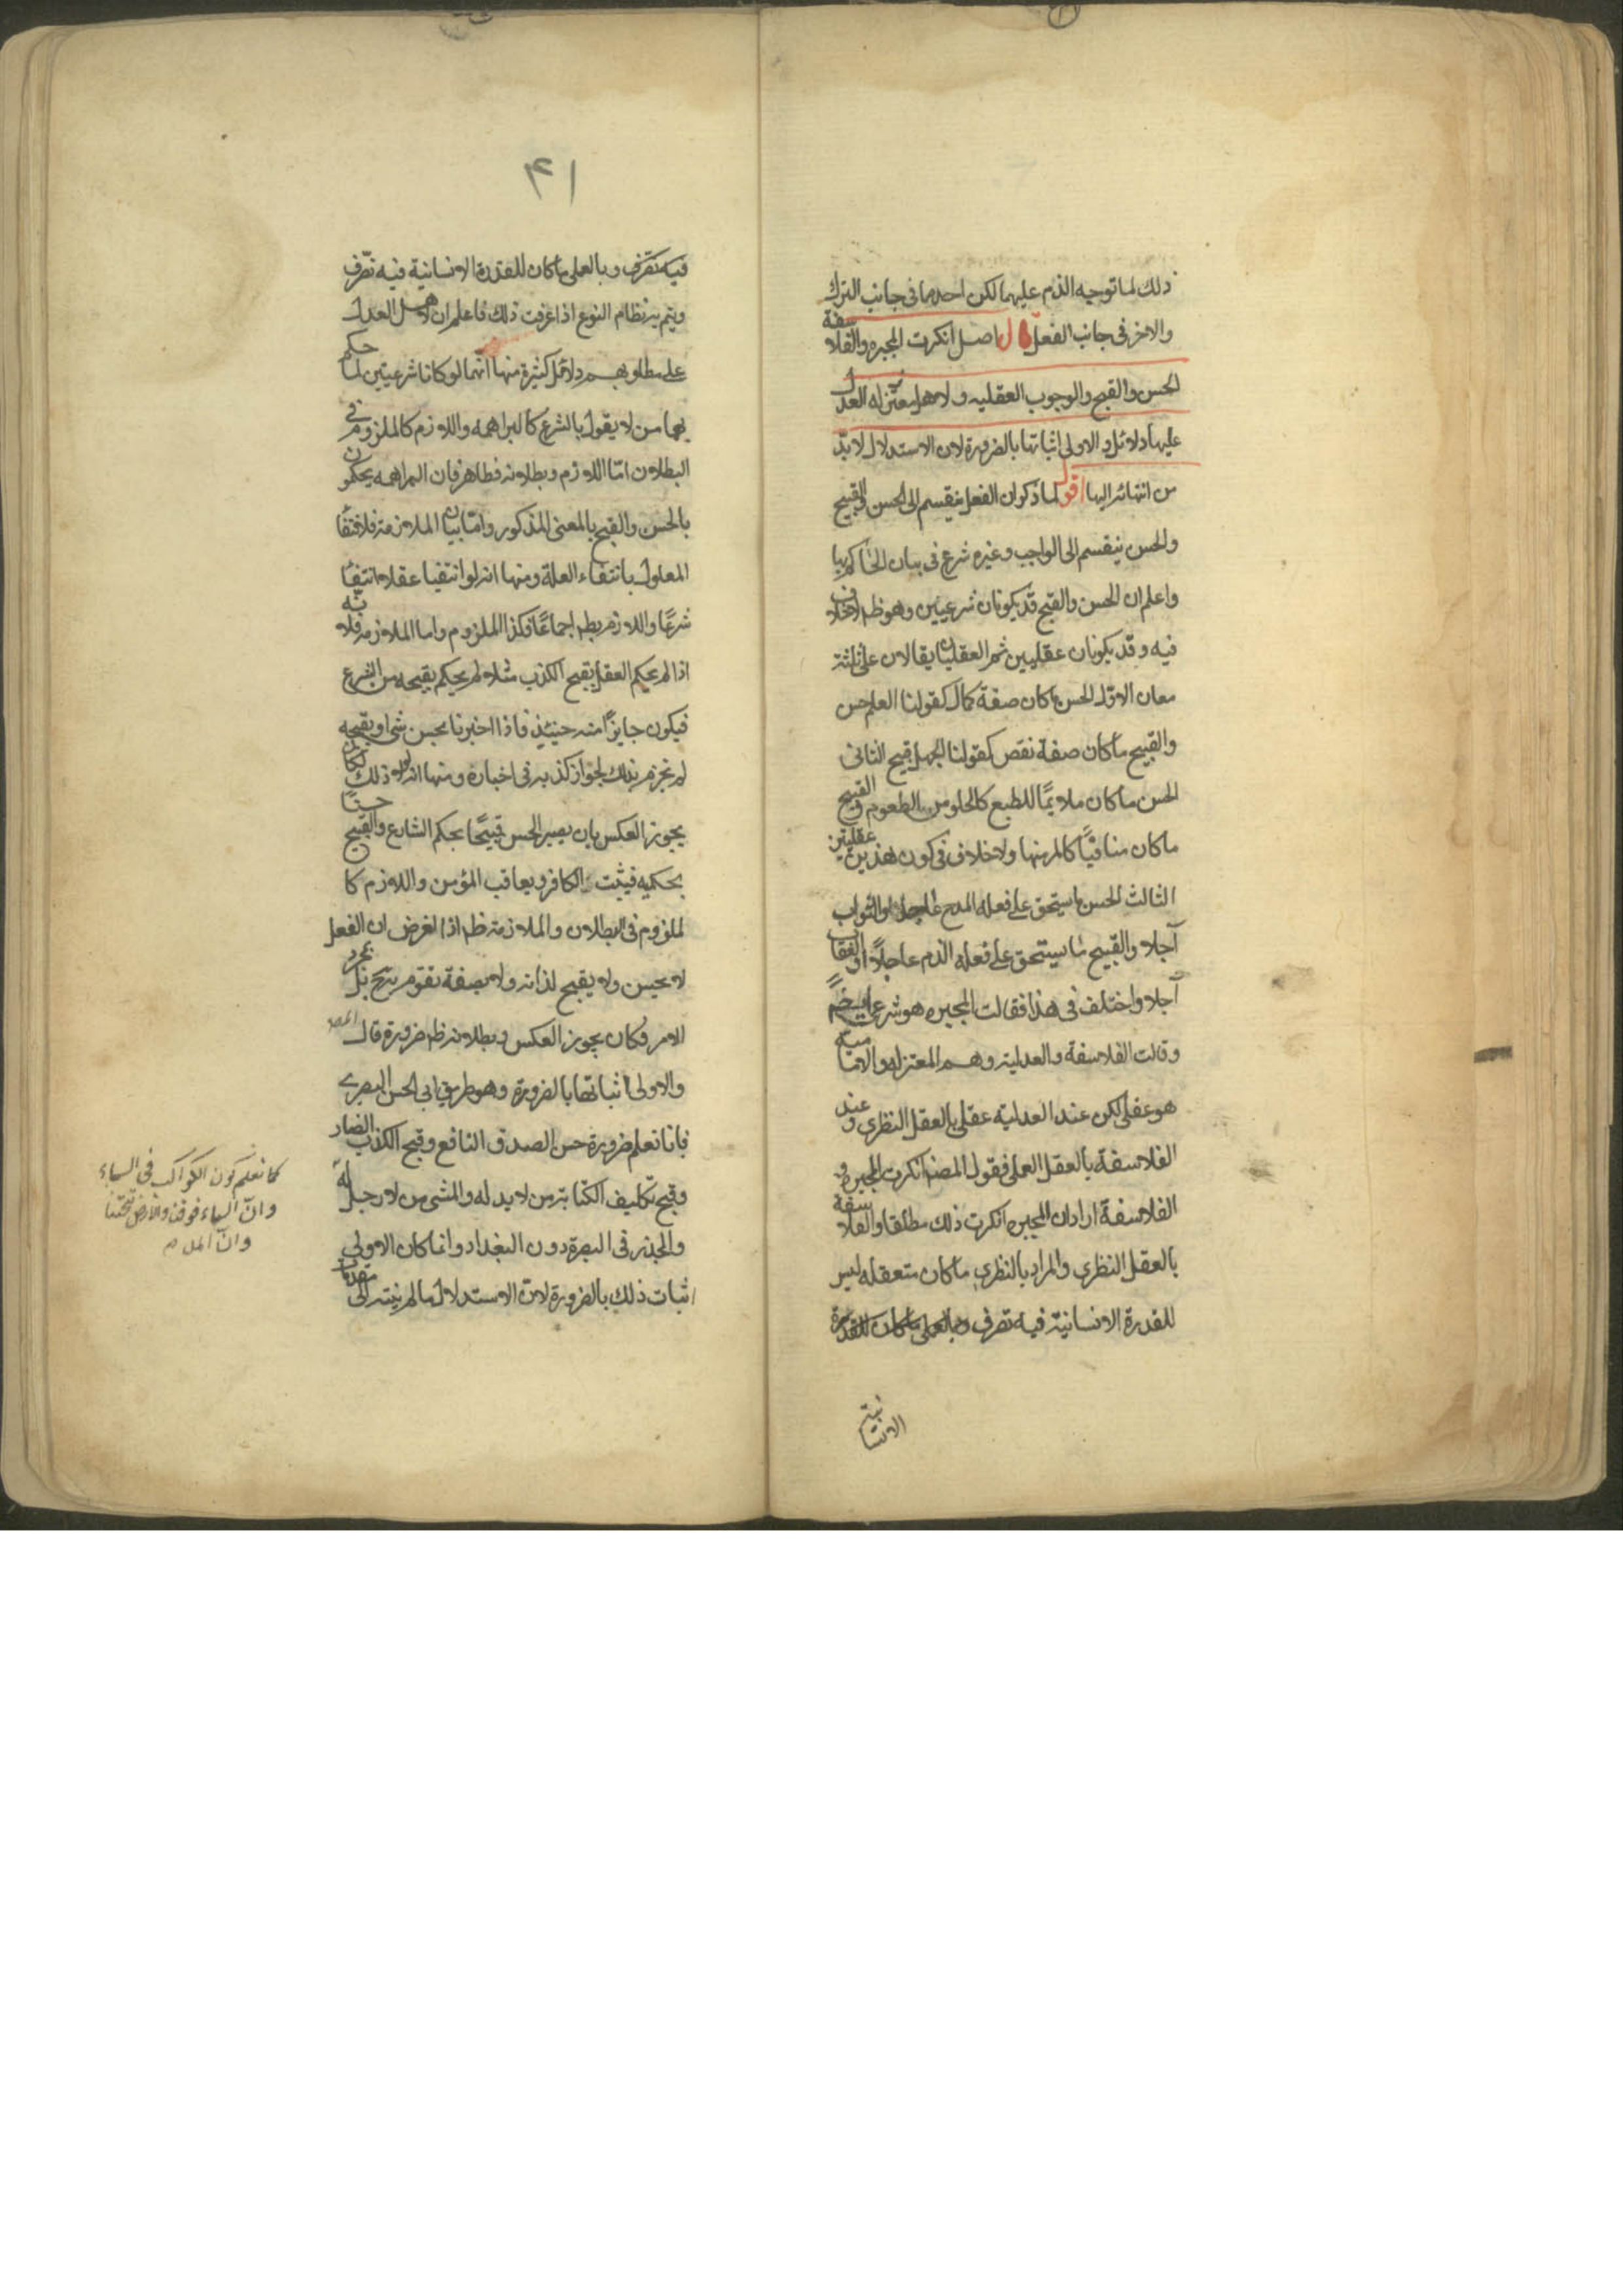 ذلك لما توجه الذم عليهما لكن احدهما فى جانب الترك
والاخر فى جانب الفعل قال اصل انكرت المجبره والفلاسفة
الحسن والقبح والوجوب العقليه ولاهل العدل
عليها دلائل والاولى اثباتها بالضرورة لان الاستدلال لا بد
من انتهائه اليها اقول لما ذكر ان الفعل ينقسم الى الحسن والقبيح
والحسن ينقسم الى الواجب وغيره شرع فى بيان الحاكم بها
واعلم ان الحسن والقبح قد يكونان شرعيين وهو ظ لا خلاف
فيه وقد يكونان عقليين ثم العقليان يقالان على ثلثة
معان الاول الحسن ما كان صفة كمال كقولنا العلم حسن
والقبيح ما كان صفة نقص كقولنا الجهل قبيح الثانى
الحسن ما كان ملايمًا للطبع كالحلو من الطعوم والقبيح
ما كان منافيًا كالمر منها ولا خلاف فى كون هذين عقليتين
الثالث الحسن ما يستحق على فعله المدح عاجلا والثواب
آجلا والقبيح ما يستحق على فعله الذم عاجلًا والعقاب
آجلا واختلف فى هذا فقالت المجبره هو شرعى ايضًا
وقالت الفلاسفة والعدلية وهم المعتزله والامامية
هو عقلى لكن عند العدلية عقلى بالعقل النظرى وعند
الفلاسفة بالعقل العملى فقول المصنف انكرت المجبره و
الفلاسفة اراد ان المجبره انكرت ذلك مطلقا والفلاسفة
بالعقل النظرى والمراد بالنظرى ما كان متعقله ليس
للقدرة الانسانية فيه تصرف وبالعملى ما كان للقدرة
الانسانية
٤١
فيه تصرف وبالعملى ما كان للقدرة الانسانية فيه تصرف
ويتم به نظام النوع اذا عرفت ذلك فاعلم ان لاهل العدل
على مطلوبهم دلائل كثيرة منها انهما لو كانا شرعيتين لما حكم
بهما من لا يقول بالشرع كالبراهمه واللازم كالملزوم فى
البطلان امّا اللازم وبطلانه فظاهر فان البراهمه يحكمون
بالحسن والقبح بالمعنى المذكور وامّا بيان الملازمة فلانتفاء
المعلول بانتفاء العلة ومنها انه لو انتفيا عقلا انتفيا
شرعًا واللازم بط اجماعًا فكذا الملزوم واما الملازمة فلانّه
اذا لم يحكم العقل بقبح الكذب مثلا لم يحكم بقبحه من الشرع
فيكون جايزًا منه حينئذ فاذا اخبرنا بحسن شى او بقبحه
لم نجزم بذلك لجواز كذبه فى اخباره ومنها انه لولا ذلك لكان
يجوز العكس بان يصير الحسن قبيحًا بحكم الشارع والقبيح حسنًا
بحكمه فيثبت الكافر ويعاقب المؤمن واللازم كا
لملزوم فى البطلان والملازمة ظ اذا لغرض ان الفعل
لا يحسن ولا يقبح لذاته ولا بصفة تقوم به بل بمجرد
الامر فكان يجوز العكس وبطلانه ظ ضرورة قال المصـ
والاولى اثباتها بالضرورة وهو طريق ابى الحسن البصرى
فانا نعلم ضرورة حسن الصدق النافع وقبح الكذب الضار
وقبح تكليف الكتابة من لا يد له والمشى من لا رجل له
فى البصرة دون البغداد وانما كان الاولى
اثبات ذلك بالضرورة لانّ الاستدلال ما لم ينته الى مقدمات
كما نعلم كون الكواكب فى السماء
وانّ السماء فوقنا والارض تحتنا